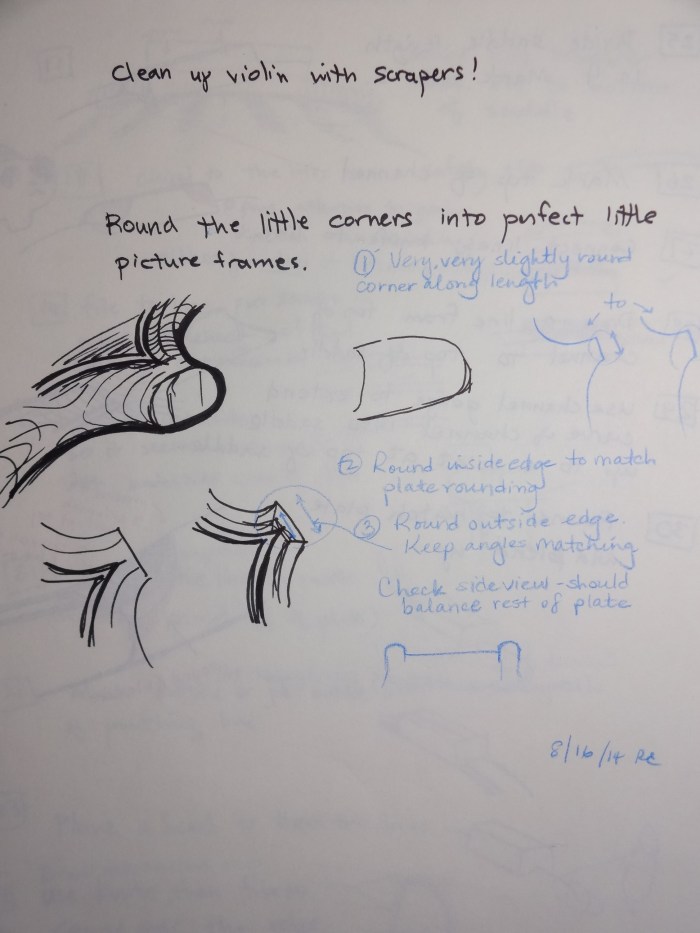 Clean up violin with scrapers!
Round the little corners into perfect little
picture frames.
① Very, very slightly round
corner along length
to
② Round inside edge to match
plate rounding
③ Round outside edge.
Keep angles matching
Check side view - should
balance rest of plate
8/16/14 RC